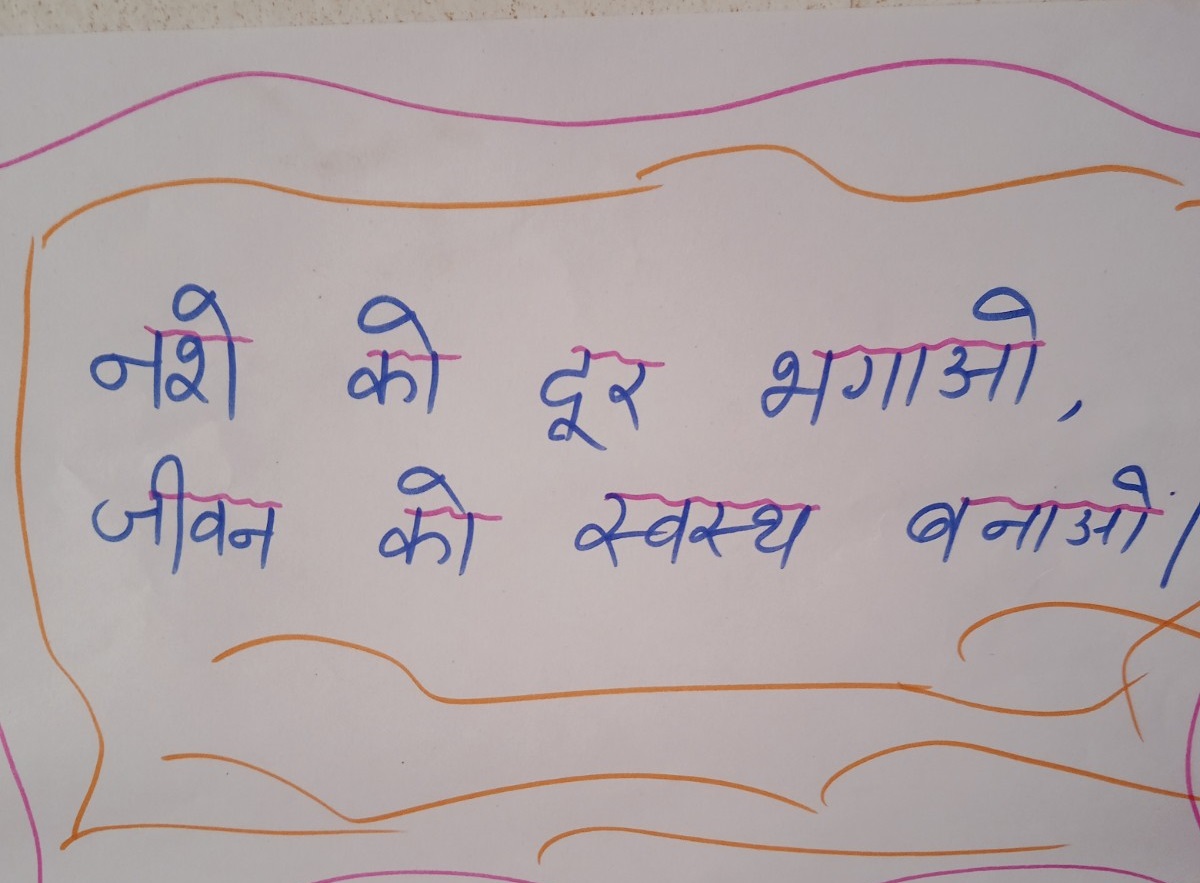 नशे को दूर भगाओ,
जीवन को स्वस्थ बनाओ।